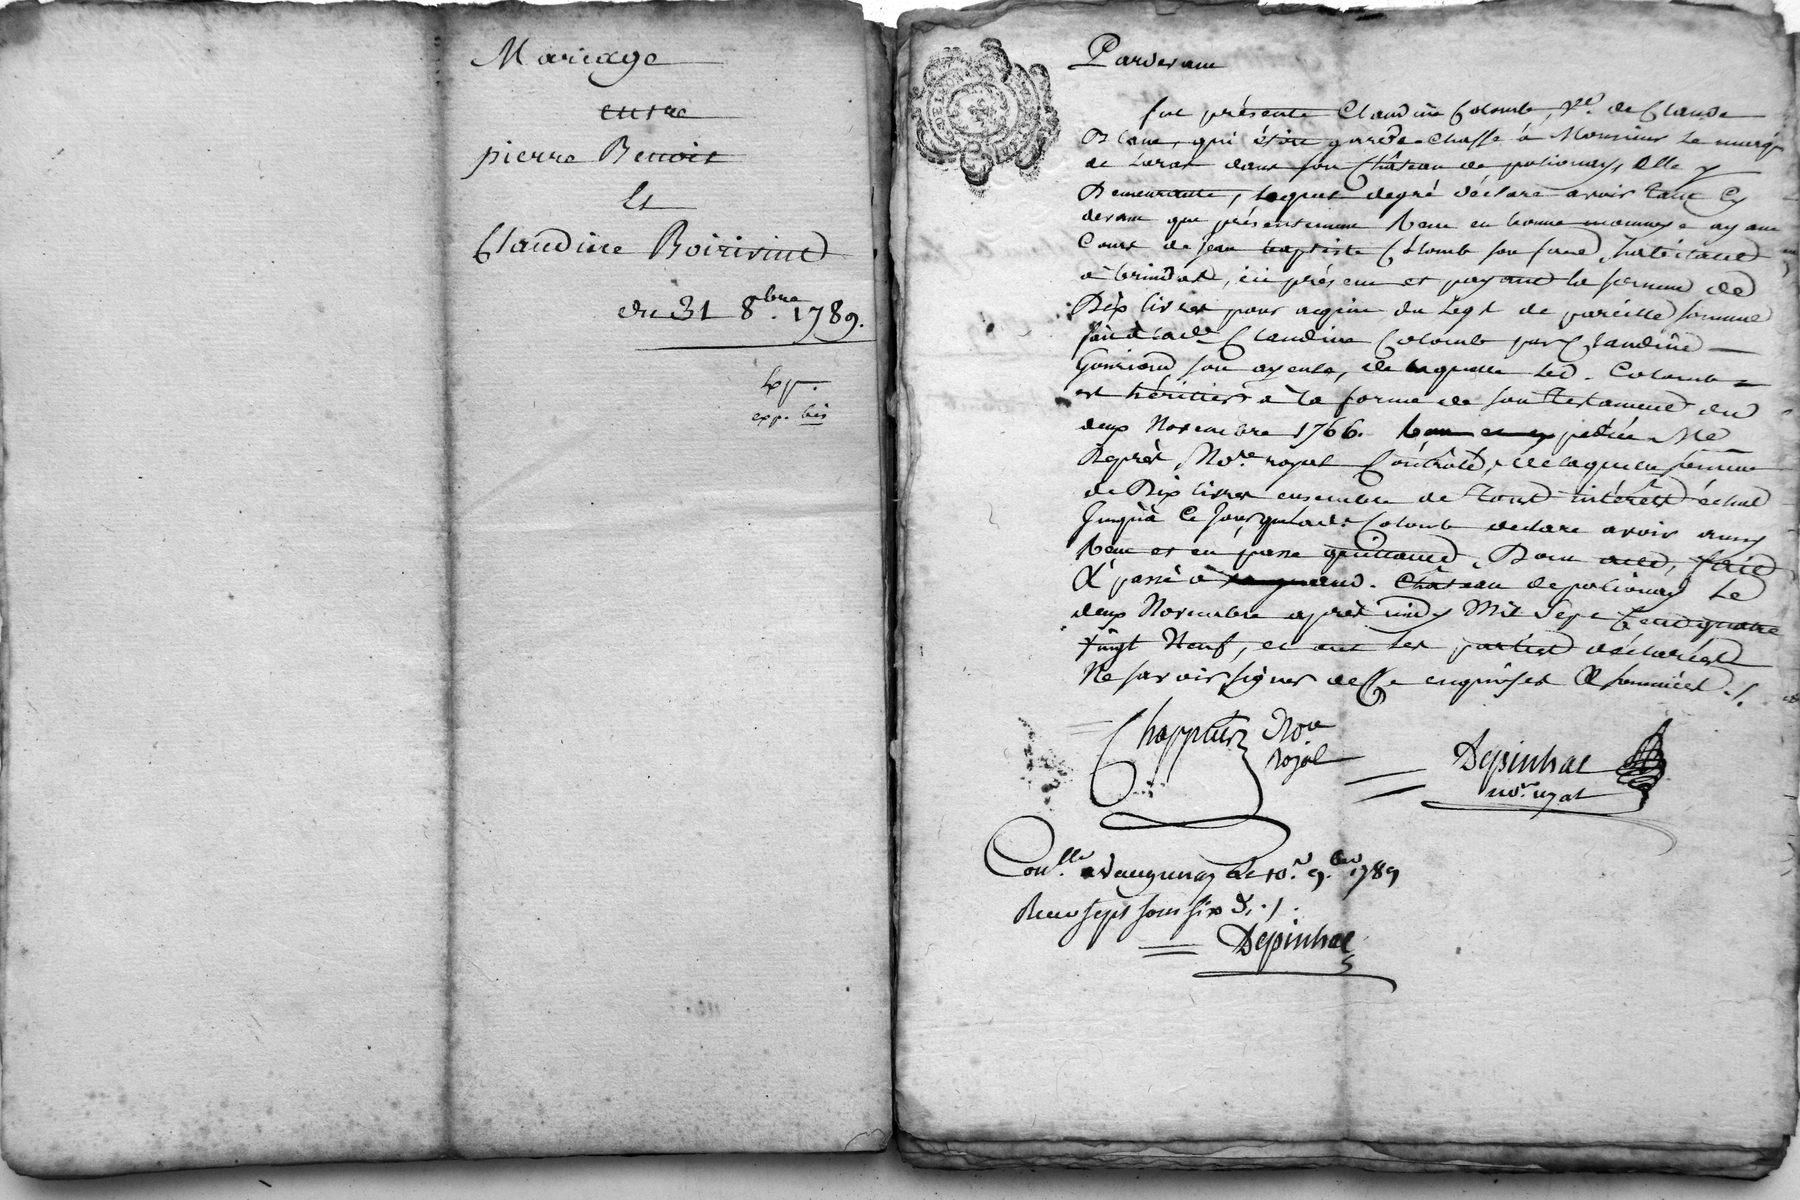 Mariage
entre
pierre Benoit
Et
Claudine Boirivint
du 31 8.bre 1789.
Exp.
exp. bis
Pardevant
fut présente Claudine Colomb, Ve. de Claude
qui étoit garde chasse à Monsieur Le marqis
de dans son Château de polionay, Elle y
Demeurante, laquelle degré déclare avoir tant Cy
devant que présentement Reçu en bonne monnoye ayant
Cours de jean baptiste Colomb son frere, habitant
à brindas, ici présent et payant la somme de
Dix livres pour du Legt de pareille somme
fait à lade. Claudine Colomb par Claudine
son ayeule, de laquelle Led. Colomb
est héritier à la forme de son Testament du
deux Novembre 1766. Reçu et expédié Me
Depres, Nore. royal Contrôlé, de laquelle somme
de Dix livres ensemble de Tout intérêt échut
Jusqu'à Ce jour, lade. Colomb declare avoir aussy
Reçu et en passe quittance, Dont acte, fait
& passé à Château de polionay Le
deux Novembre après midy Mil Sept Cent quatre
vingt Neuf, et ont Les parties déclarées
Ne savoir signer de Ce enquises & sommées ./.
Nore
royal
Depinhac
nore. royal
Conllé. à Vaugneray Le 10. 9.bre 1789
Reçu sept sous six d. ./.
Depinhac